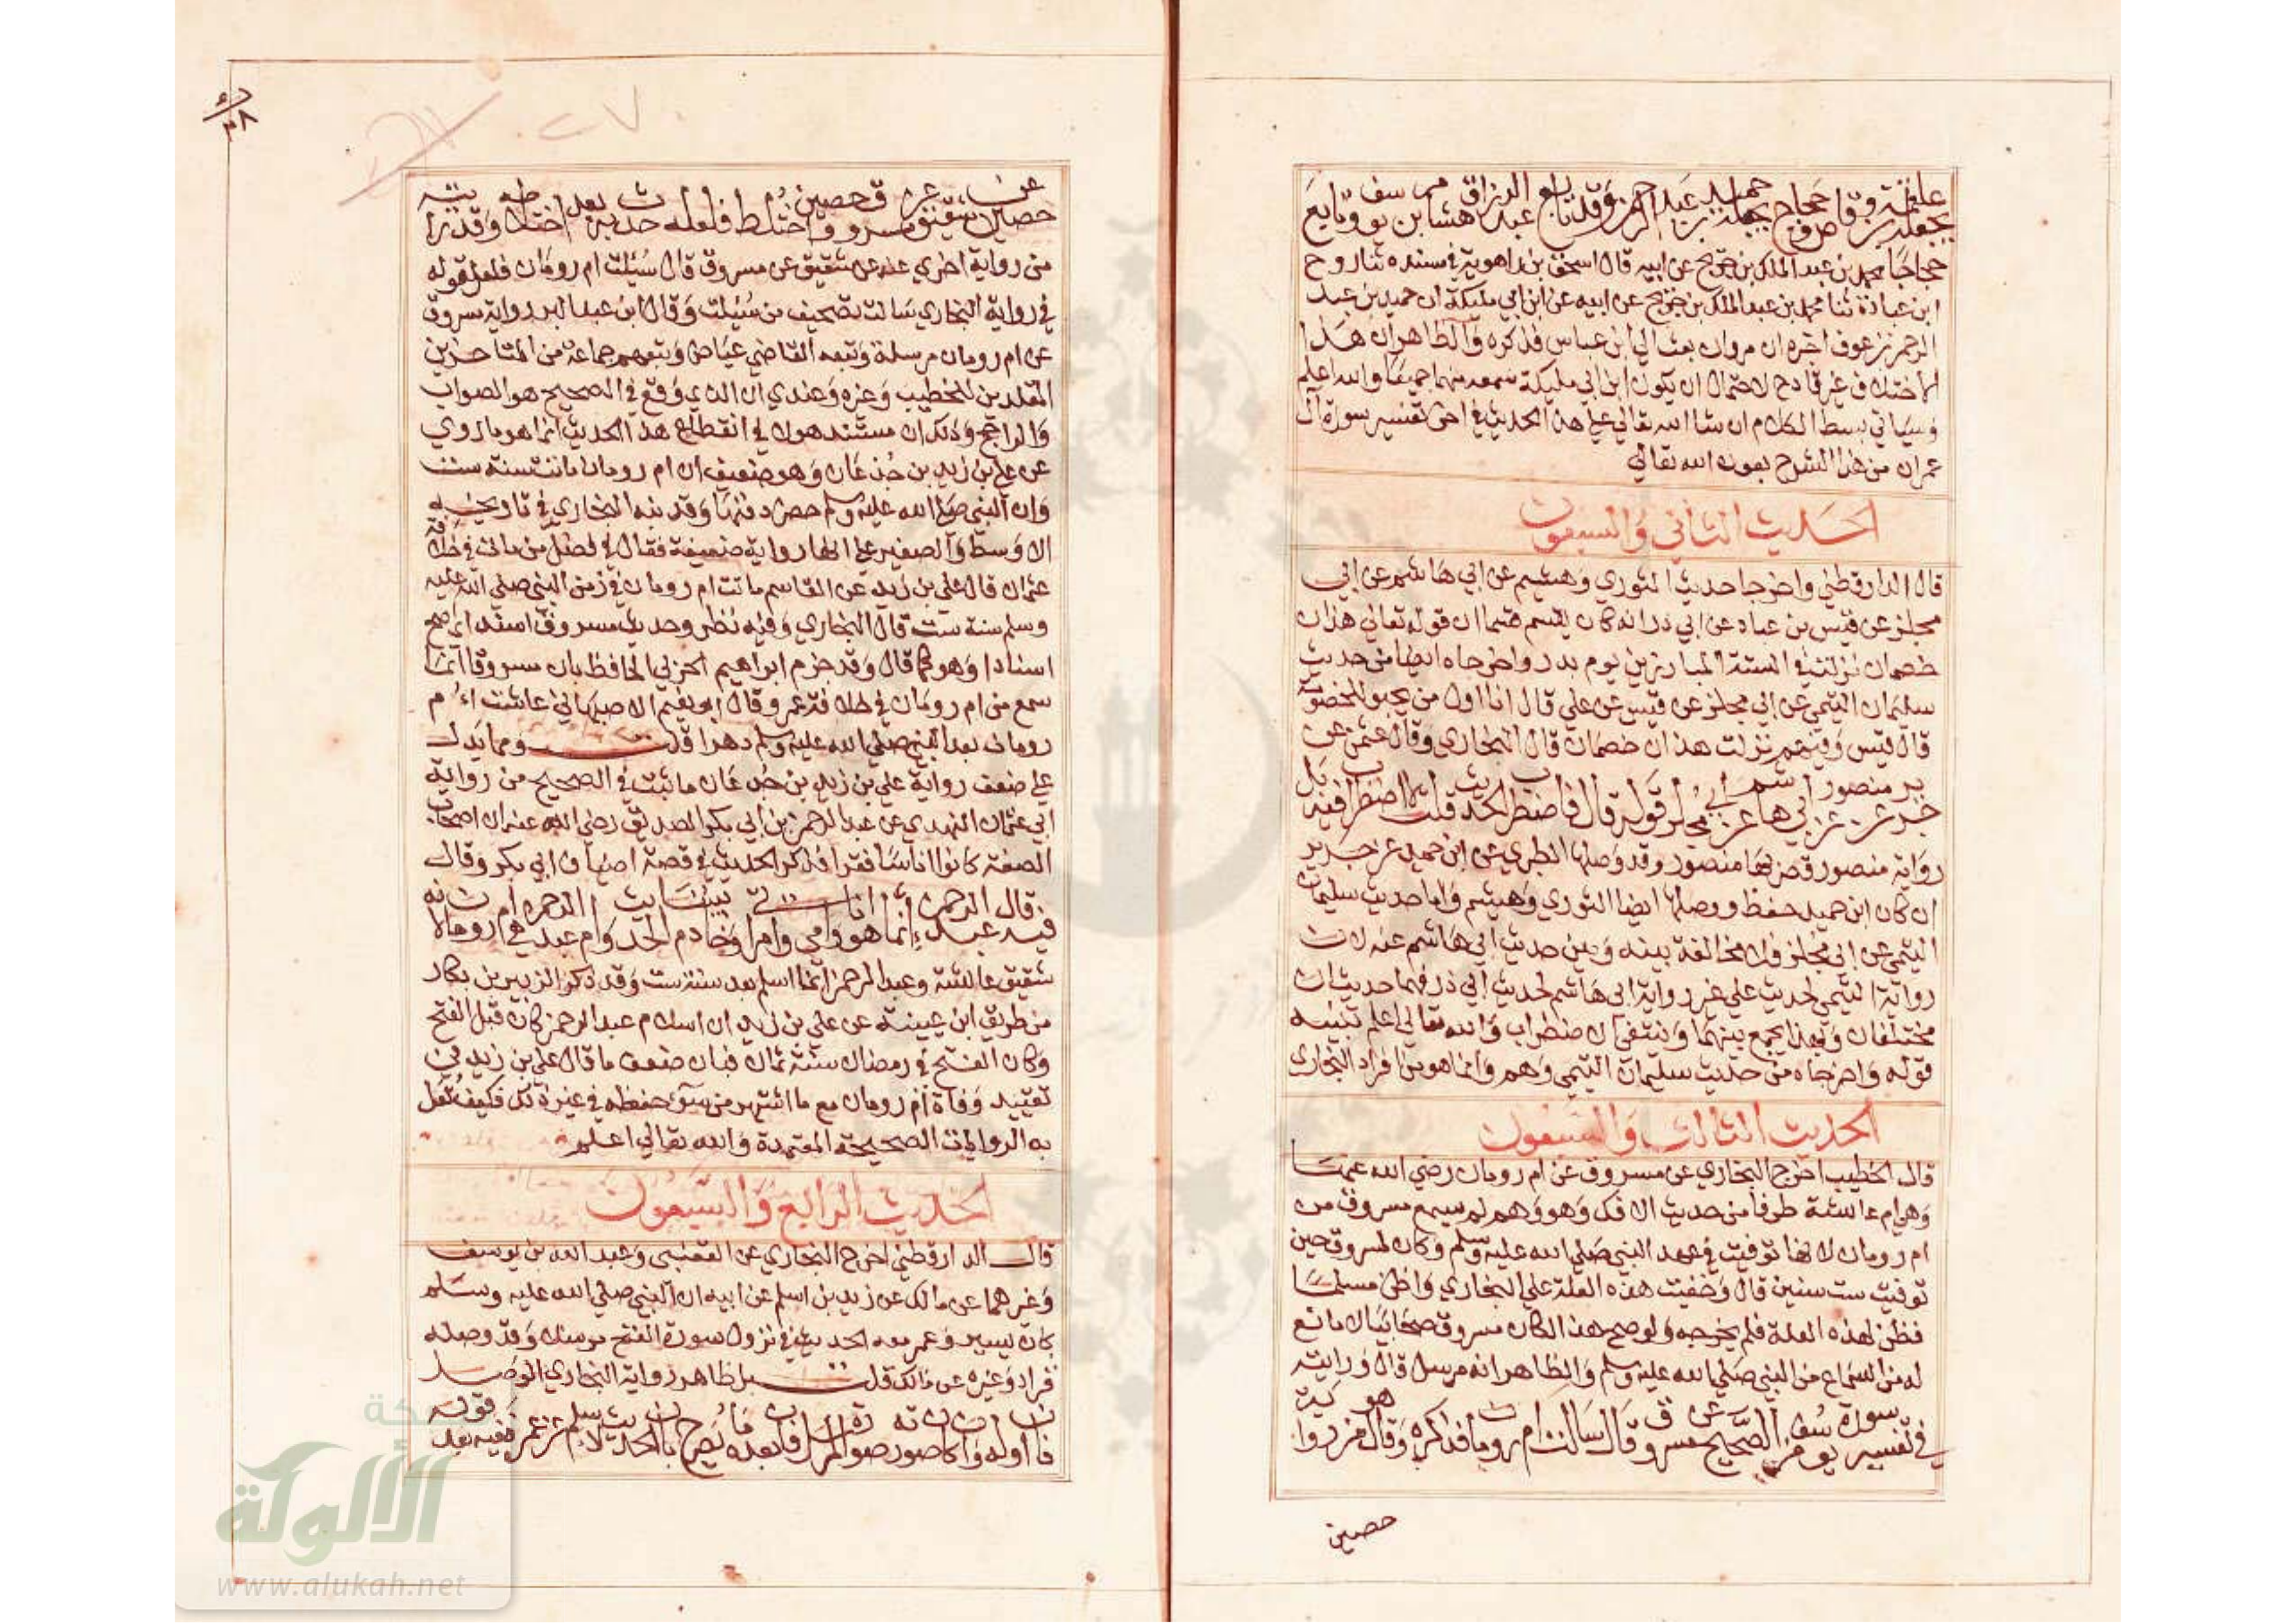 علقمة بن وقاص وحجاج يجعله حميد بن عبد الرحمن وقد تابع عبد الرزاق هشام بن يوسف وتابع
حجاجا محمد بن عبد الملك بن جريج عن ابيه قال اسحق بن راهوية في مسنده ثنا روح
ابن عبادة ثنا محمد بن عبد الملك بن جريج عن ابيه عن ابن ابي مليكة ان حميد بن عبد
الرحمن بن عوف اخبره ان مروان بعث الي ابن عباس فذكره والظاهر ان هذا
الاختلاف غير قادح لاحتمال ان يكون ابن ابي مليكة سمعه منهما جميعا والله اعلم
وسياتي بسط الكلام ان شا الله تعالي علي هذا الحديث في اخر تفسير سورة ال
عمران من هذا الشرح بعون الله تعالي
الحديث الثاني والسبعون
قال الدارقطني واخرجا حديث الثوري وهشيم عن ابي هاشم عن ابي
مجلز عن قيس بن عباد عن ابي ذر انه كان يقسم قسما ان قوله تعالي هذان
خصمان نزلت في الستة المبارزين يوم بدر واخرجاه ايضا من حديث
سليمان التيمي عن ابي مجلز عن قيس عن علي قال انا اول من يجثو للخصومة
قال قيس وفيهم نزلت هذان خصمان قال البخاري وقال عثمن عن
جرير عن منصور عن ابي هاشم عن ابي مجلز قوله قال فاضطرب الحديث قلت اضطراب فيه بل
رواية منصور قصر بها منصور وقد وصلها الطبري عن ابن حميد عن جرير
ان كان ابن حميد حفظ ووصلها ايضا الثوري وهشيم واما حديث سليمان
التيمي عن ابي مجلز فلا مخالفة بينه وبين حديث ابي هاشم عنه لان
رواية التيمي لحديث علي غير رواية ابي هاشم لحديث ابي ذر فهما حديثان
مختلفان وبهذا يجمع بينهما وينتفي الاضطراب والله تعالي اعلم تنبيه
قوله واخرجاه من حديث سليمان التيمي وهم وانما هو من افراد البخاري
الحديث الثالث والسبعون
قال الخطيب اخرج البخاري عن مسروق عن ام رومان رضي الله عنها
وهي ام عائشة طرفا من حديث الافك وهو وهم لم يسمع مسروق من
ام رومان لانها توفيت في عهد النبي صلي الله عليه وسلم وكان لمسروق حين
توفيت ست سنين قال وخفيت هذه العلة علي البخاري واظن مسلما
فطن لهذه العلة فلم يخرجه ولو صح هذا لكان مسروق صحابيا لا مانع
له من السماع من النبي صلي الله عليه وسلم والظاهر انه مرسل قال ورايته
في تفسير سورة يوسف من الصحيح عن مسروق قال سالت ام رومان فذكره وقال هو من رواية
حصين
حصين عن شقيق عن مسروق وحصين اختلط فلعله حدث به بعد اختلاطه وقد
من رواية اخري عنه عن شقيق عن مسروق قال سئلت ام رومان فلعل قوله
في رواية البخاري سالت تصحيف من سئلت وقال ابن عبد البر رواية مسروق
عن ام رومان مرسلة وتبعه القاضي عياض وتبعهم جماعة من المتاخرين
المقلدين للخطيب وغيره وعندي ان الذي وقع في الصحيح هو الصواب
والراجح وذلك ان مستند هولا في انقطاع هذا الحديث انما هو ما روي
عن علي بن زيد بن جدعان وهو ضعيف ان ام رومان ماتت سنة ست
وان النبي صلي الله عليه وسلم حضر دفنها وقد نبه البخاري في تاريخيه
الاوسط والصغير علي انها رواية ضعيفة فقال في فصل من مات في خلافة
عثمان قال علي بن زيد عن القاسم ماتت ام رومان في زمن النبي صلي الله عليه
وسلم سنة ست قال البخاري وفيه نظر وحديث مسروق اسند اي اصح
اسنادا وهو كما قال وقد جزم ابراهيم الحربي الحافظ بان مسروقا انما
سمع من ام رومان في خلافة عمر وقال ابو نعيم الاصبهاني عاشت ام
رومان بعد النبي صلي الله عليه وسلم دهرا قلت ومما يدل
علي ضعف رواية علي بن زيد بن جدعان ما ثبت في الصحيح من رواية
ابي عثمان النهدي عن عبد الرحمن بن ابي بكر الصديق رضي الله عنه ان اصحاب
الصفة كانوا اناسا فقرا فذكر الحديث في قصة اضياف ابي بكر وقال
فيه قال عبد الرحمن انما هو انا وامي وامراتي وخادم بيتنا الحديث وام عبد الرحمن هي ام رومان لانه
شقيق عائشة وعبد الرحمن انما اسلم بعد سنة ست وقد ذكر الزبير بن بكار
من طريق ابن عيينة عن علي بن زيد ان اسلام عبد الرحمن كان قبل الفتح
وكان الفتح في رمضان سنة ثمان فبان ضعف ما قال علي بن زيد في
تقييد وفاة ام رومان مع ما اشتهر من سوء حفظه في غير ذلك فكيف تعل
به الروايات الصحيحة المعتمدة والله تعالي اعلم
الحديث الرابع والسبعون
قال الدارقطني اخرج البخاري عن القعنبي وعبد الله بن يوسف
وغيرهما عن مالك عن زيد بن اسلم عن ابيه ان النبي صلي الله عليه وسلم
كان يسير وعمر معه الحديث في نزول سورة الفتح مرسلا وقد وصله
قراد وغيره عن مالك قلت بل ظاهر رواية البخاري الوصل
فان اوله وان كان صورته صورة المرسل فان بعده ما يصرح بان الحديث لاسلم عن عمر ففيه بعد قوله
الألوكة
www.alukah.net